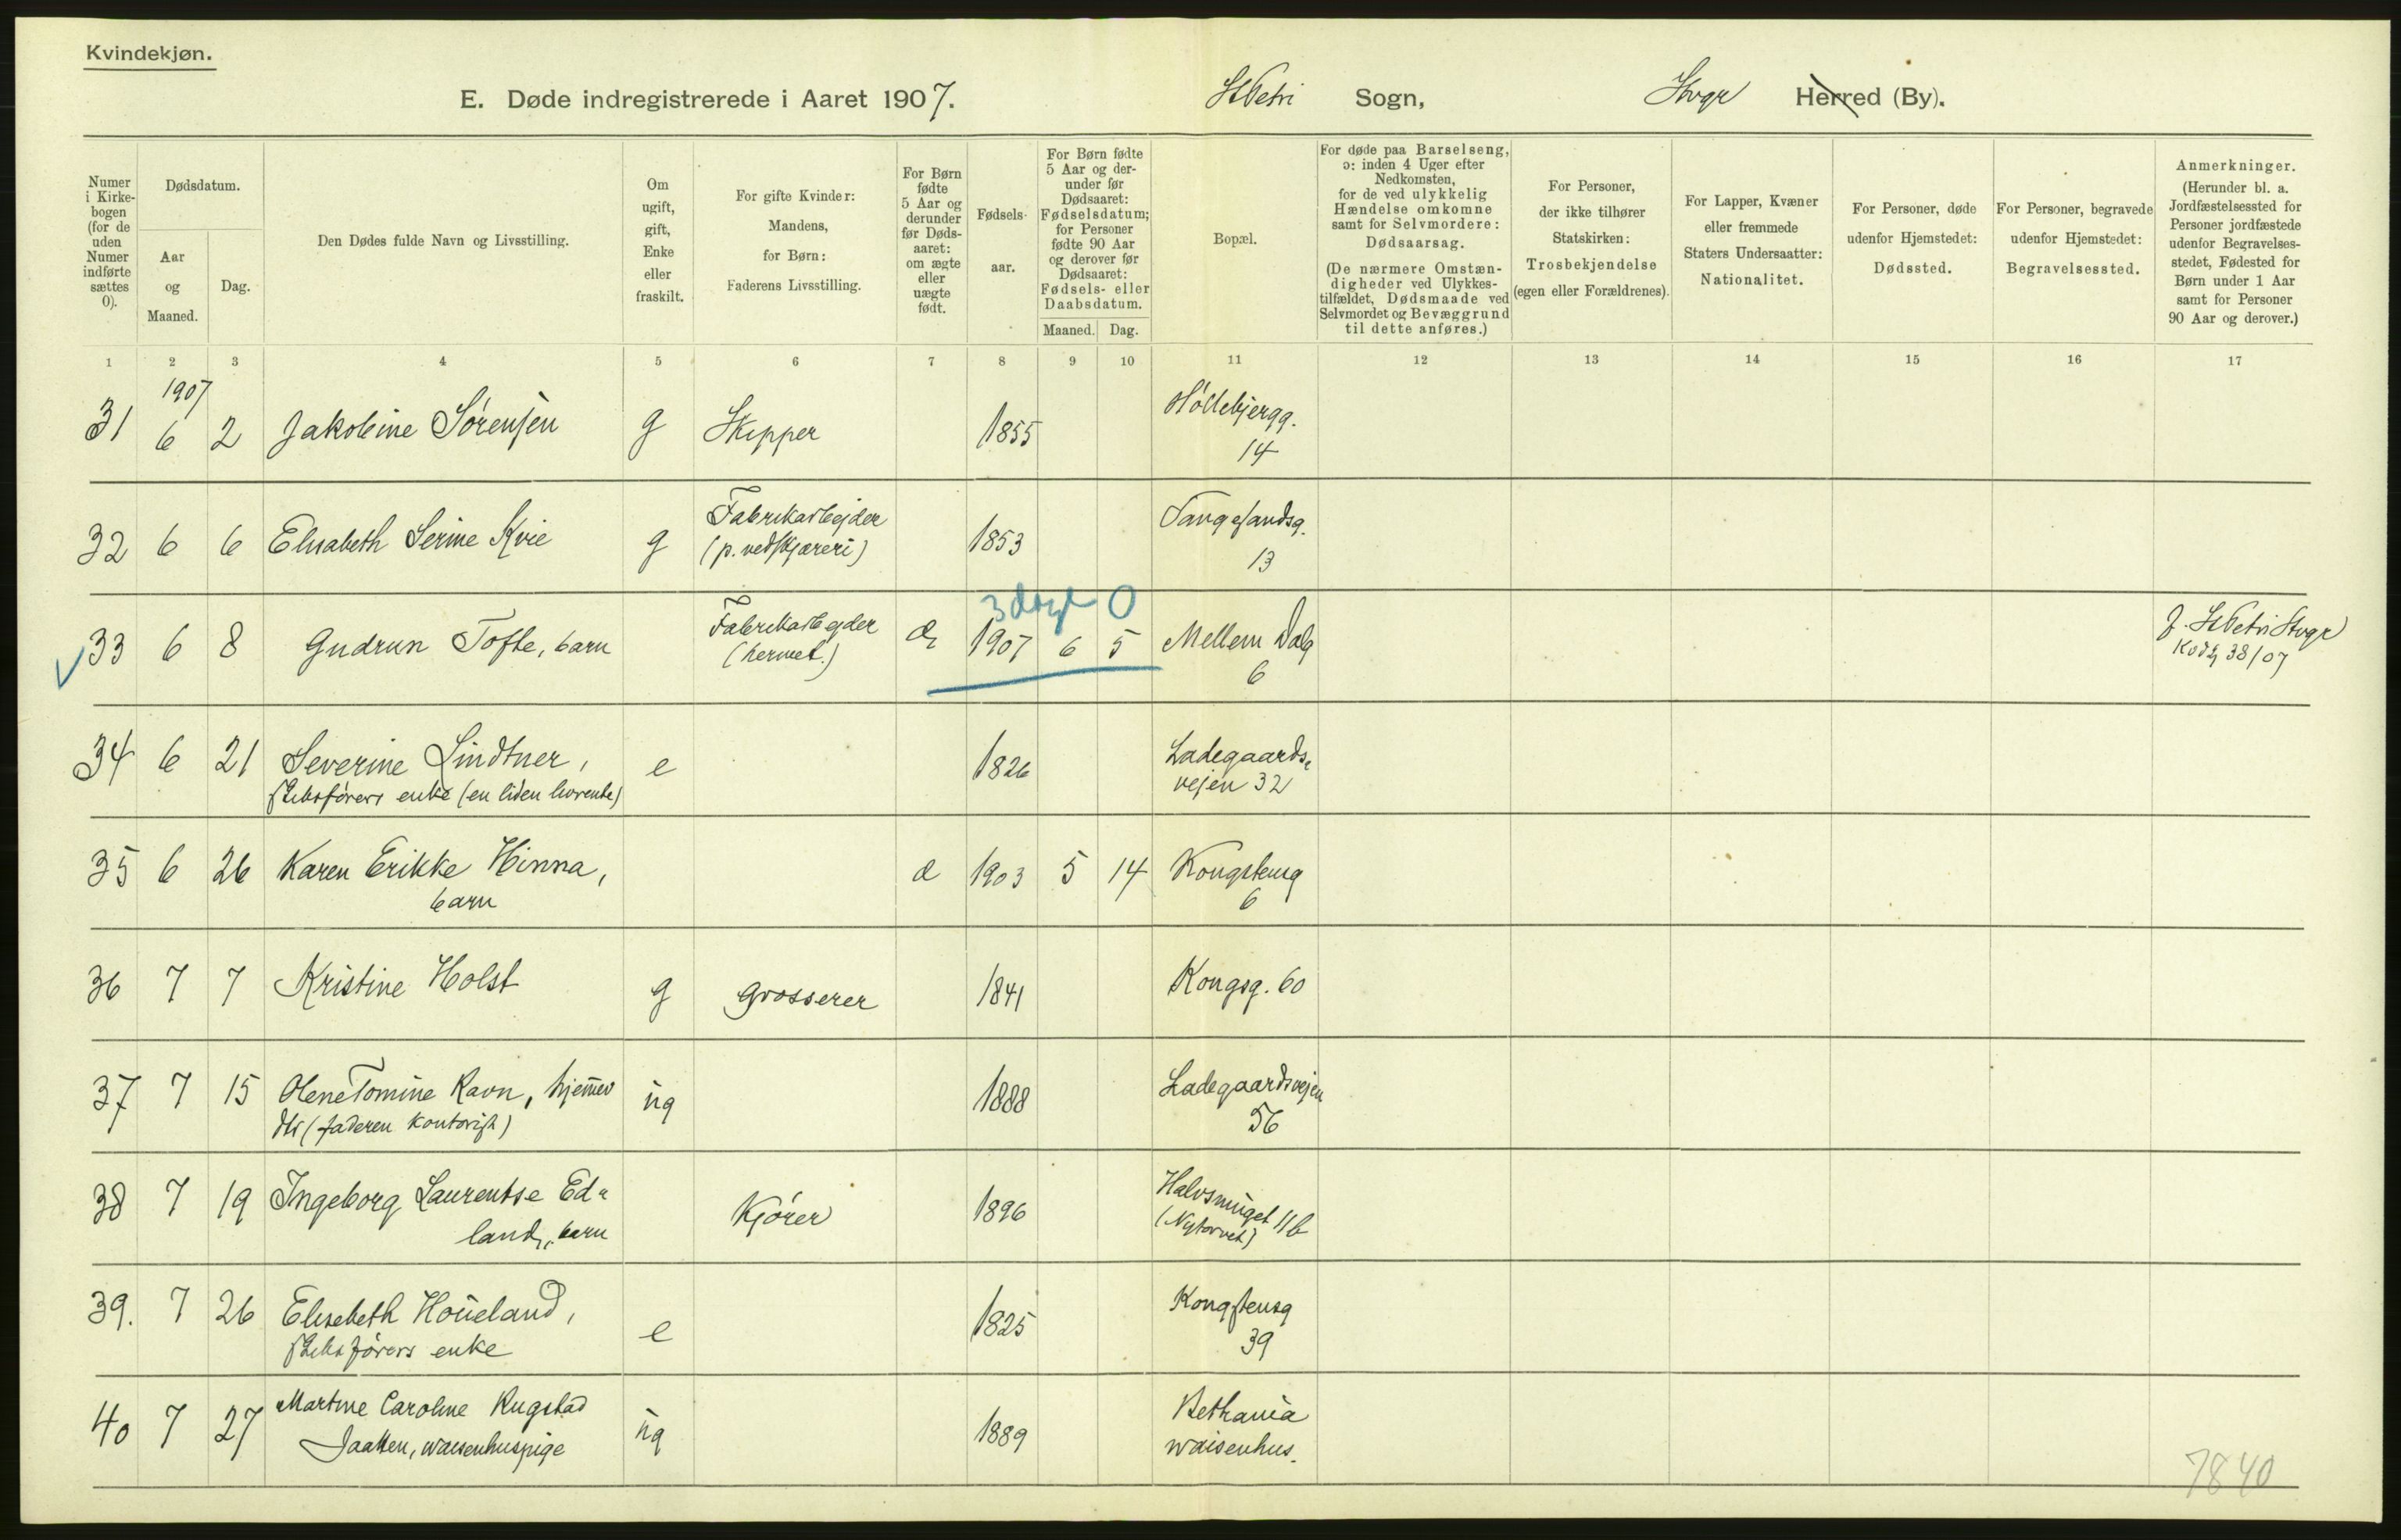 Kvindekjøn.
E. Døde indregistrerede i Aaret 1907. St Petri Sogn, Stvgr Herred (By).
Numer i Kirkebogen (for de uden Numer indførte sættes 0).
Dødsdatum.
Aar og Maaned.
Dag.
Den Dødes fulde Navn og Livsstilling.
Om ugift, gift, Enke eller fraskilt.
For gifte Kvinder: Mandens, for Børn: Faderens Livsstilling.
For Børn fødte 5 Aar og derunder før Dødsaaret: om ægte eller uægte født.
Fødselsaar.
For Børn fødte 5 Aar og derunder før Dødsaaret: Fødselsdatum; for Personer fødte 90 Aar og derover før Dødsaaret: Fødsels- eller Daabsdatum.
Maaned. Dag.
Bopæl.
For døde paa Barselseng, ɔ: inden 4 Uger efter Nedkomsten, for de ved ulykkelig Hændelse omkomne samt for Selvmordere: Dødsaarsag.
(De nærmere Omstændigheder ved Ulykkestilfældet, Dødsmaade ved Selvmordet og Bevæggrund til dette anføres.)
For Personer, der ikke tilhører Statskirken: Trosbekjendelse (egen eller Forældrenes).
For Lapper, Kvæner eller fremmede Staters Undersaatter: Nationalitet.
For Personer, døde udenfor Hjemstedet: Dødssted.
For Personer, begravede udenfor Hjemstedet: Begravelsessted.
Anmerkninger.
(Herunder bl. a. Jordfæstelsessted for Personer jordfæstede udenfor Begravelsesstedet, Fødested for Børn under 1 Aar samt for Personer 90 Aar og derover.)
1 2 3 4 5 6 7 8 9 10 11 12 13 14 15 16 17
1907
31 6 2 Jakobine Sørensen g Skipper 1855 Høllebjergg.
14
32 6 6 Elisabeth Serine Kvie g Fabrikarbejder 1853 Tangesandsg.
(p. vedskjæreri) 13
3 dage 0
33 6 8 Gudrun Tofte, barn Fabrikarbejder 1907 6 5 Mellem Dalg
(hermet.) 6
F. St Petri Stvgr
38/07
34 6 21 Severine Lindtner, e 1826 Ladegaards-
skibsførers enke (en liden livrente) vejen 32
35 6 26 Karen Erikke Hinna, d 1903 5 14 Kongsteusg
barn 6
36 7 7 Kristine Holst g Grosserer 1841 Kongsg. 60
37 7 15 Olene Tomine Ravn, hjemmev ug 1888 Ladegaardsvejen
dtr (faderen kontorist) 56
38 7 19 Ingeborg Laurentse Ed- Kjører 1896 Halvsmuget 11b
land, barn (Nytorvet)
39. 7 26 Elisebeth Houeland, e 1825 Kongsteusg
skibsførers enke 39
40 7 27 Martine Caroline Rugstad ug 1889 Bethania
Jaatten, waisenhuspige waisenhus.
7840